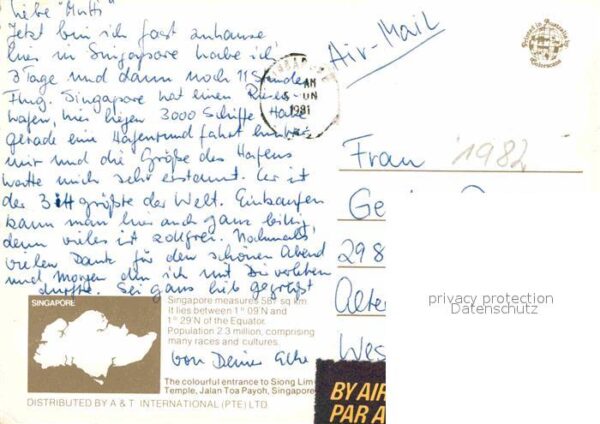 Liebe "Mutti"
Jetzt bin ich fast zuhause
hier in Singapore habe ich
3 Tage und dann noch 11 Stunden
Flug. Singapore hat einen Riesen-
hafen, hier liegen 3000 Schiffe. Habe
gerade eine Hafenrundfahrt hinter
mir und die Größe des Hafens
hatte mich sehr erstaunt. Er ist
der größte der Welt. Einkaufen
kann man hier auch ganz billig,
denn vieles ist zollfrei. Nochmals
vielen Dank für den schönen Abend
und Morgen den ich mit Dir verleben
durfte. Sei ganz lieb gegrüßt
von Deiner
Air-Mail
Printed in Australia by
AM
5 JUN
1981
Frau
1982
Ge
298
Alte
Wes
privacy protection
Datenschutz
SINGAPORE
Singapore measures 581 sq km.
It lies between 1° 09'N and
1° 29'N of the Equator.
Population 2.3 million, comprising
many races and cultures.
The colourful entrance to Siong Lim
Temple, Jalan Toa Payoh, Singapore
DISTRIBUTED BY A & T INTERNATIONAL (PTE) LTD.
BY AIR
PAR A